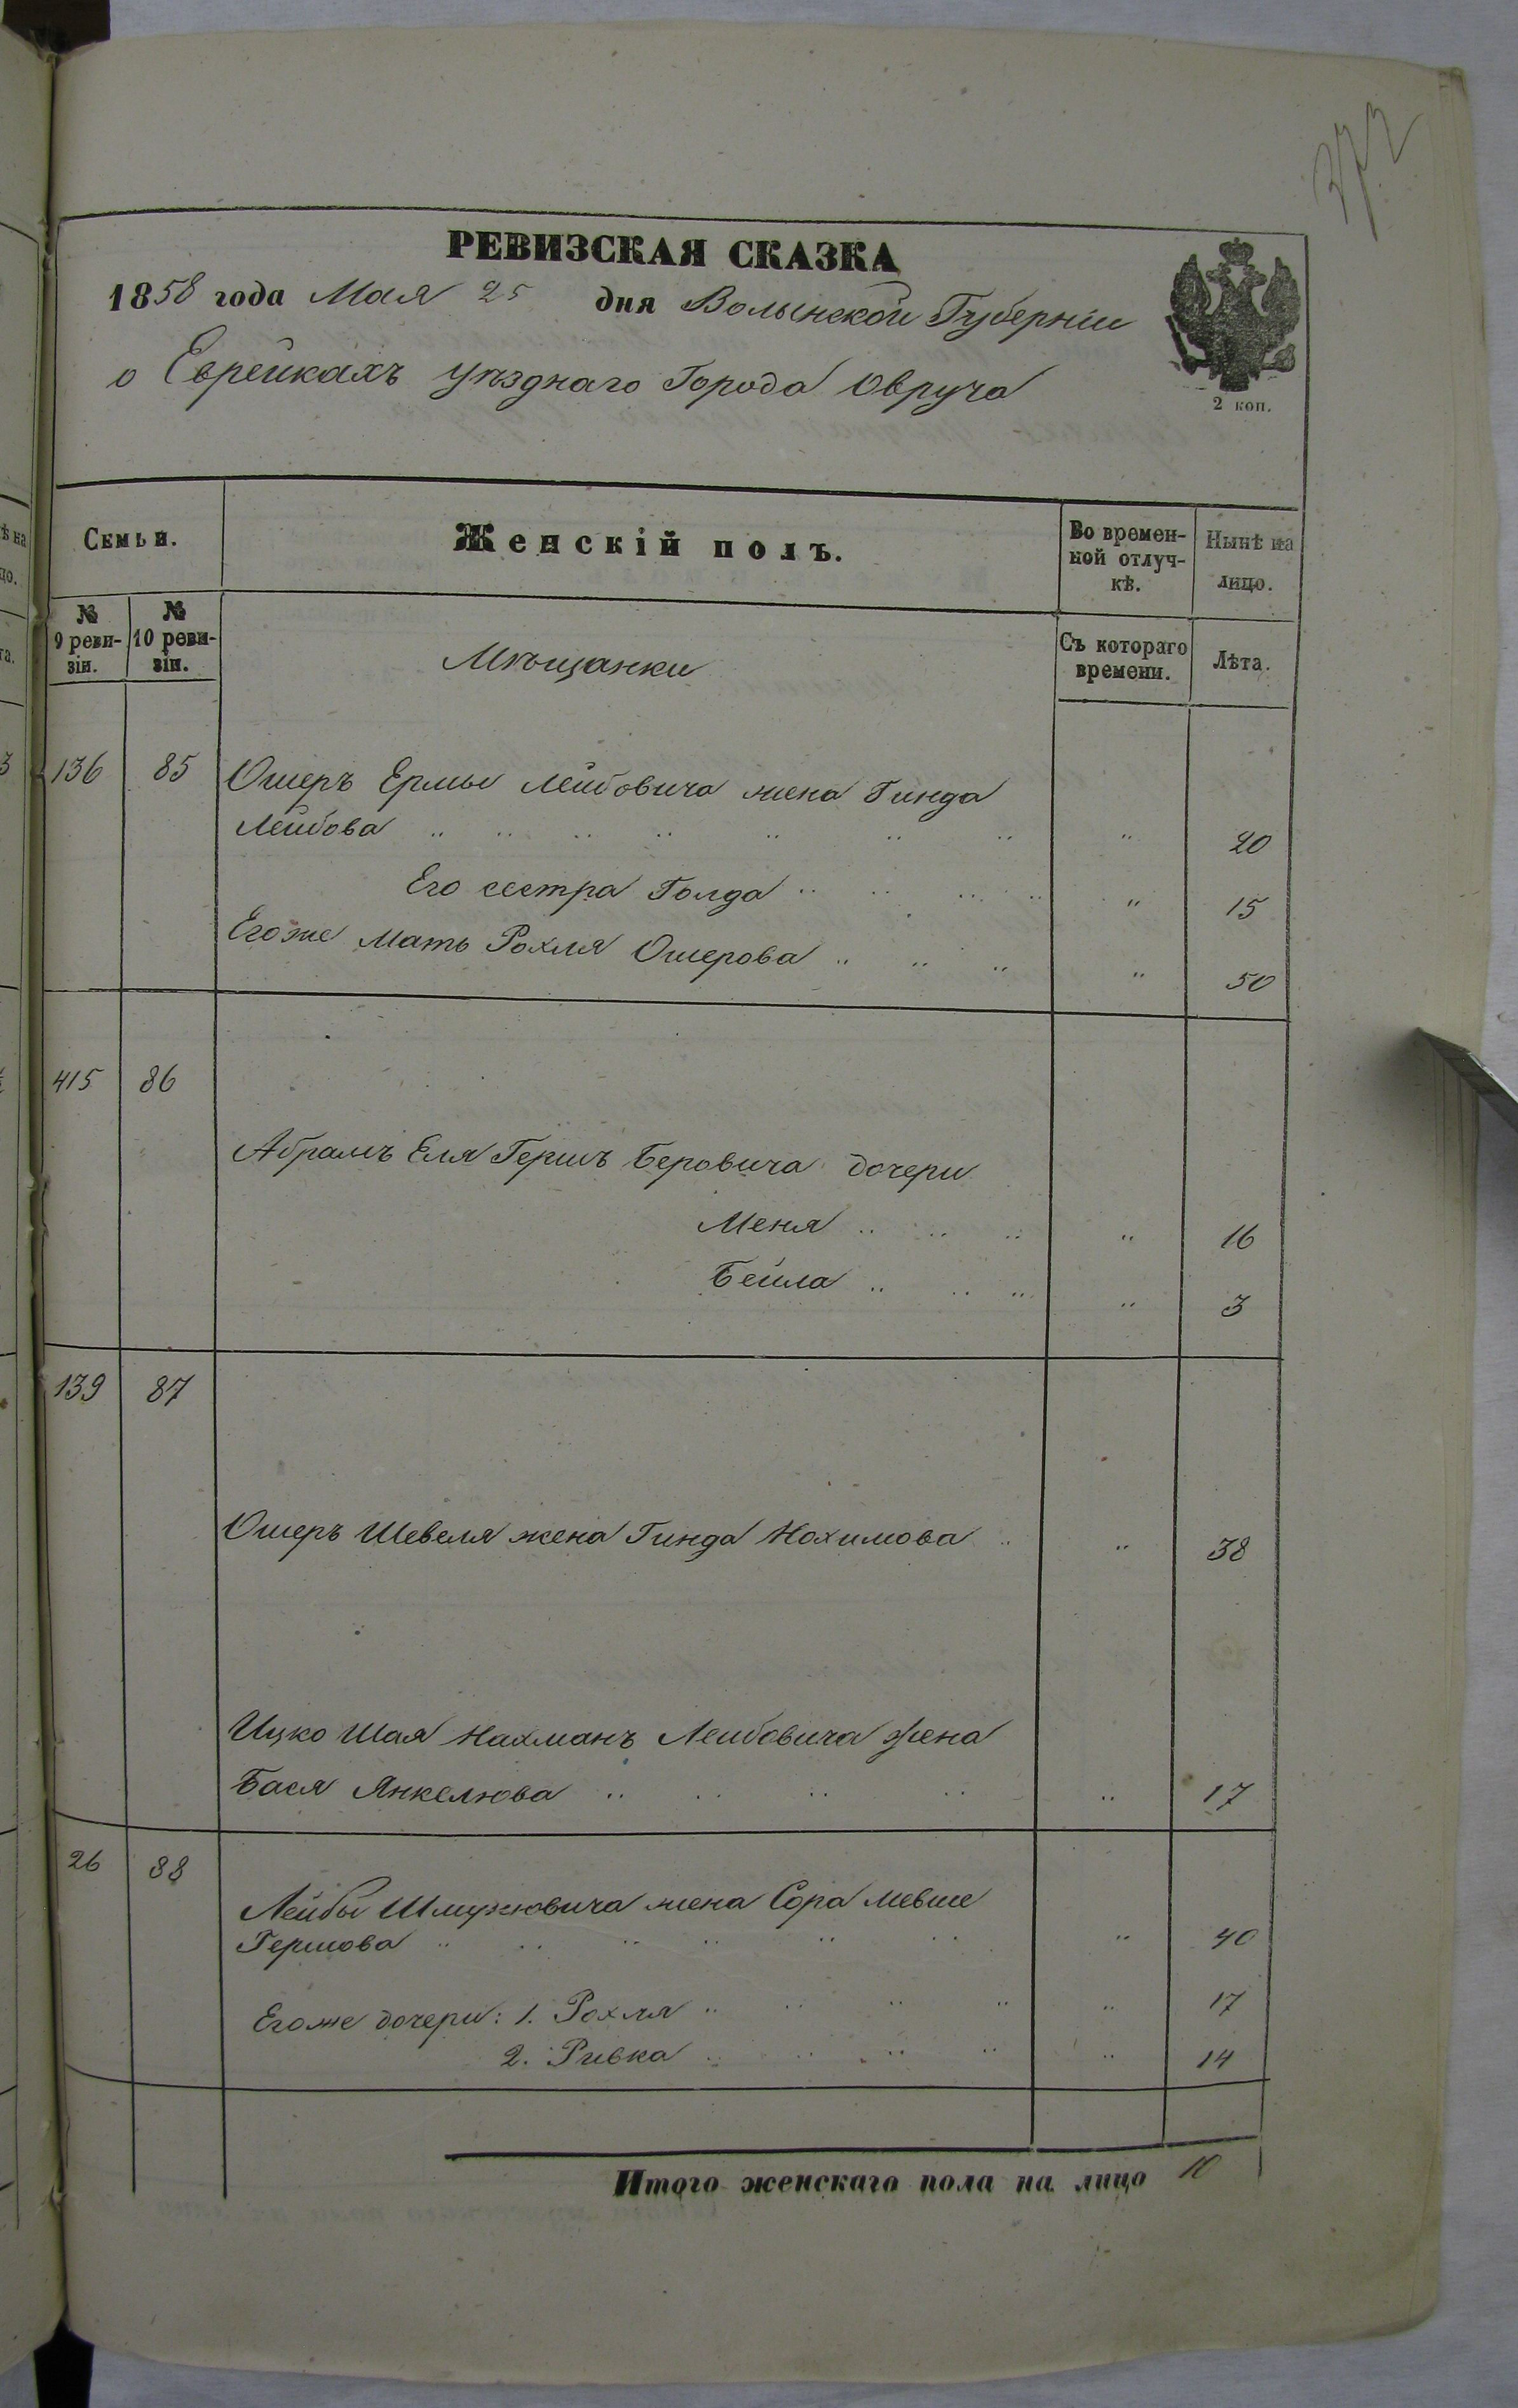 РЕВИЗСКАЯ СКАЗКА
1858 года Мая 25 дня Волынской Губерніи
о Еврейкахъ уѣзднаго Города Овруча
2 коп.
Семьи.
Женскій полъ.
Во времен-
ной отлуч-
кѣ.
Нынѣ на
лицо.
№
9 реви-
зіи.
№
10 реви-
зіи.
Мѣщанки
Съ котораго
времени.
Лѣта.
136 85 Ошеръ Ермы Лейбовича жена Гинда
Лейбова " 20
Его сестра Голда " 15
Егоже Мать Рохля Ошерова " 50
415 86
Абрамъ Еля Гершъ Беровича дочери
Меня " 16
Бейла " 3
139 87
Ошеръ Шевеля жена Гинда Нохимова " 38
Ицко Шая Нахманъ Лейбовича жена
Бася Янкелюва " 17
26 88
Лейбы Шмулювича жена Сора
Гершова " 40
Егоже дочери: 1. Рохля " 17
2. Ривка " 14
Итого женскаго пола на лицо 10